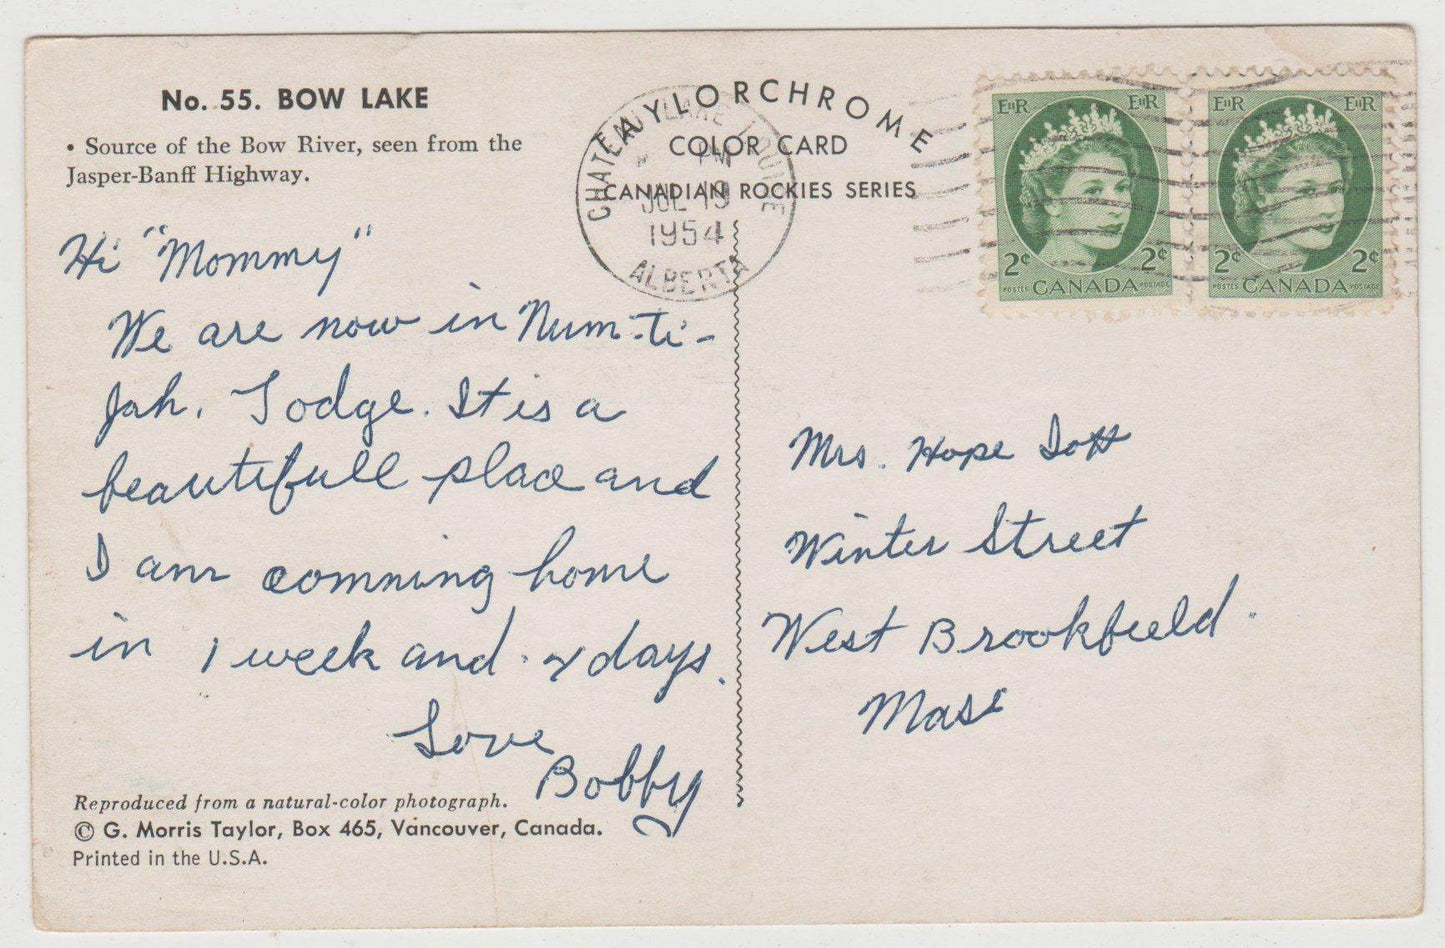 No. 55. BOW LAKE
• Source of the Bow River, seen from the
Jasper-Banff Highway.
TAYLORCHROME
COLOR CARD
CANADIAN ROCKIES SERIES
CHATEAU LAKE LOUISE
PM
JUL 19
1954
ALBERTA
EIIR EIIR
2¢ 2¢
POSTES CANADA POSTAGE
EIIR EIIR
2¢ 2¢
POSTES CANADA POSTAGE
Hi "Mommy"
We are now in Num-ti-
Jah. Lodge. It is a
beautifull place and
I am comning home
in 1 week and days.
Love
Bobby
Mrs. Hope
Winter Street
West Brookfield.
Mass
Reproduced from a natural-color photograph.
© G. Morris Taylor, Box 465, Vancouver, Canada.
Printed in the U.S.A.